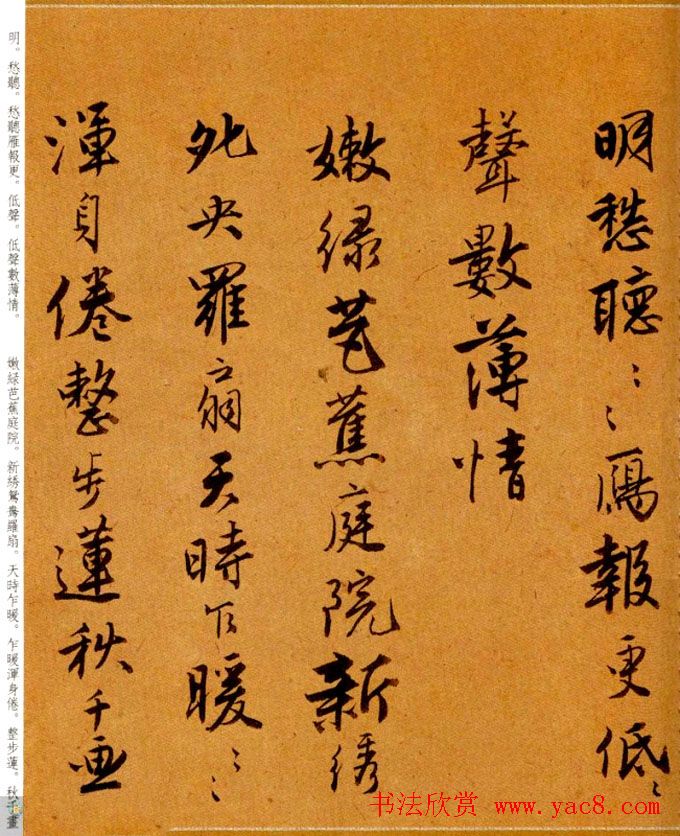 明愁聽〻〻鴈報更低〻
聲數薄情
嫩緑芭蕉庭院新绣
夗央羅扇天時乍暖〻〻
渾身倦整步蓮秋千画
明。愁聽。愁聽雁報更。低聲。低聲數薄情。
嫩緑芭蕉庭院。新綉鴛鴦羅扇。天時乍暖。乍暖渾身倦。整步蓮。秋千畫
书法欣赏 www.yac8.com